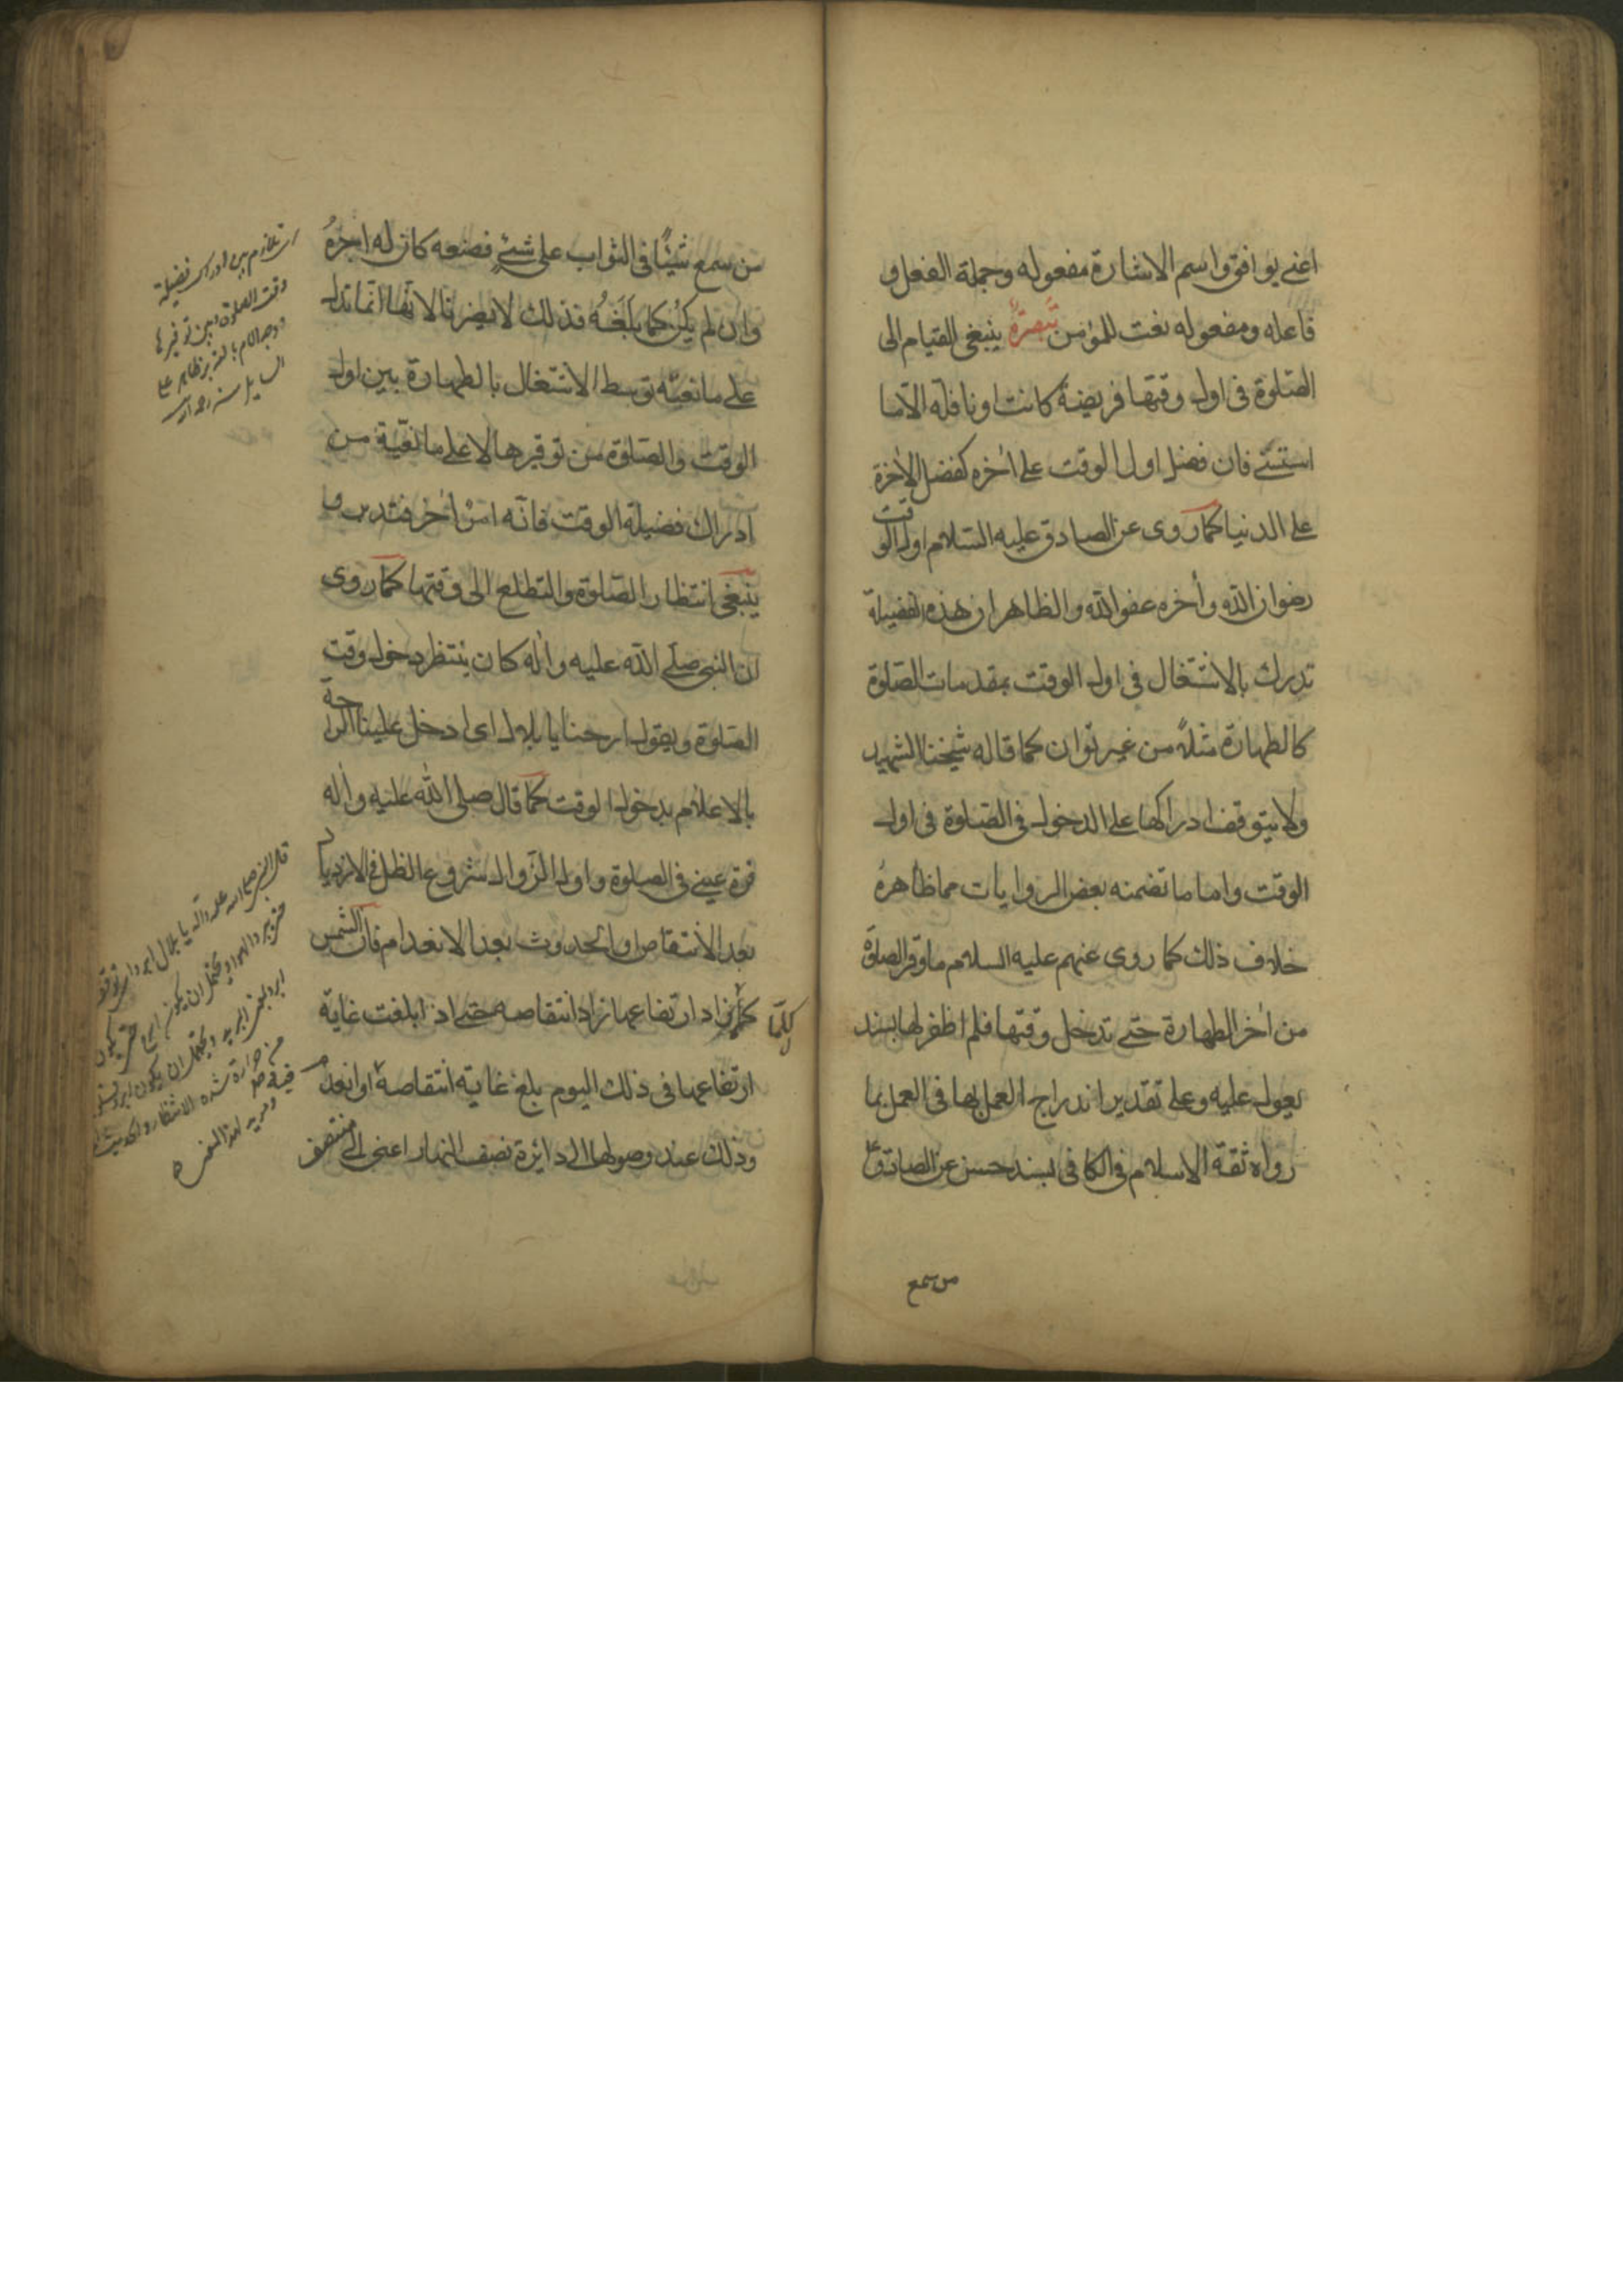 اعنى يوافق واسم الاشارة مفعوله وجملة الفعل و
فاعله ومفعوله نعت للمؤمن تبصرة ينبغى القيام الى
الصلوة فى اول وقتها فريضة كانت او نافلة الا ما
استثنى فان فضل اول الوقت على اخره كفضل الاخرة
على الدنيا كما روى عن الصادق عليه السلام اول الوقت
رضوان الله وأخره عفو الله والظاهر ان هذه الفضيلة
تدرك بالاشتغال فى اول الوقت بمقدمات الصلوة
كالطهارة مثلاً من غير توان كما قاله شيخنا الشهيد
ولا يتوقف ادراكها على الدخول فى الصلوة فى اول
الوقت واما ما تضمنه بعض الروايات مما ظاهره
خلاف ذلك كما روى عنهم عليه السلام ما وقر الصلوة
من اخر الطهارة حتى تدخل وقتها فلم اظفر لها بسند
يعول عليه وعلى تقدير اندراج العمل بها فى العمل بما
رواه ثقة الاسلام فى الكافى بسند حسن عن الصادق ع
من سمع
من سمع شيئًا فى الثواب على شئ فصنعه كان له اجره
وان لم يكن كما بلغه فذلك لا يضرنا لانها انما تدل
على مانعية توسط الاشتغال بالطهارة بين اول
الوقت والصلوة من توقيرها لا على مانعية من
ادراك فضيلة الوقت فانه امر اخر فتدبر و
ينبغى انتظار الصلوة والتطلع الى وقتها كما روى
ان النبى صلى الله عليه وأله كان ينتظر دخول وقت
الصلوة ويقول ارحنا يا بلال اى ادخل علينا الراحة
بالاعلام بدخول الوقت كما قال صلى الله عليه وأله
قرة عينى فى الصلوة واول الزوال شروع الظل فى الازدياد
بعد الانتقاص او الحدوث بعد الانعدام فان الشمس
كلما زاد ارتفاعها زاد انتقاصه حتى اذا بلغت غاية
كلما
ارتفاعها فى ذلك اليوم بلغ غاية انتقاصه او انعدم
وذلك عند وصولها الى دائرة نصف النهار اعنى الى منتصف
بين ادراك فضيلة
وقت الصلوة وبين توقيرها
قال النبى صلى الله عليه وآله يا بلال ابرد